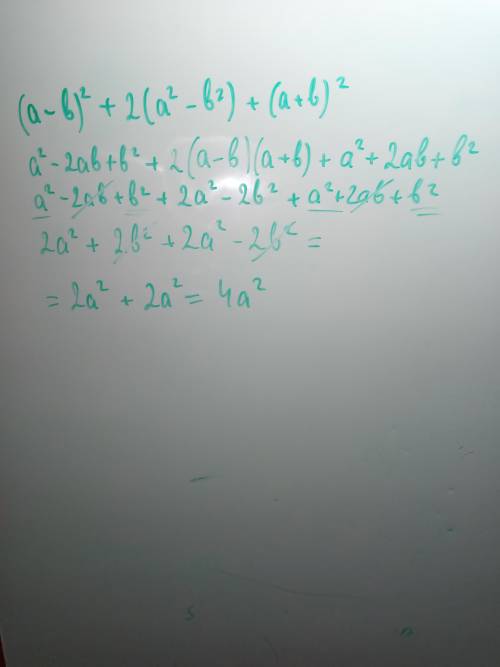 (a-b)² + 2(a² - b²) + (a+b)²
a² - 2ab + b² + 2(a-b)(a+b) + a² + 2ab + b²
a² - 2ab + b² + 2a² - 2b² + a² + 2ab + b²
2a² + 2b² + 2a² - 2b² =
= 2a² + 2a² = 4a²